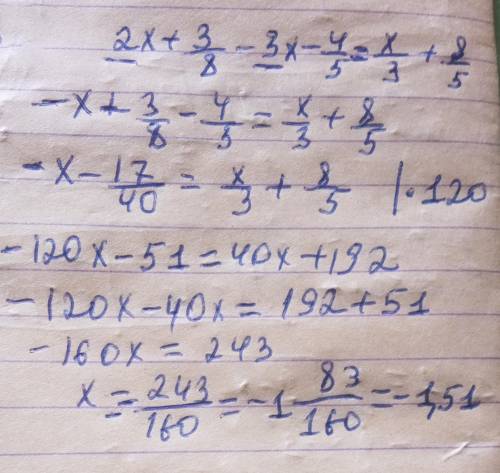 2x + 3/8 - 3x - 4/5 = x/3 + 8/5
-x + 3/8 - 4/5 = x/3 + 8/5
-x - 17/40 = x/3 + 8/5 | · 120
-120x - 51 = 40x + 192
-120x - 40x = 192 + 51
-160x = 243
x = 243/160 = -1 83/160 = -1,51